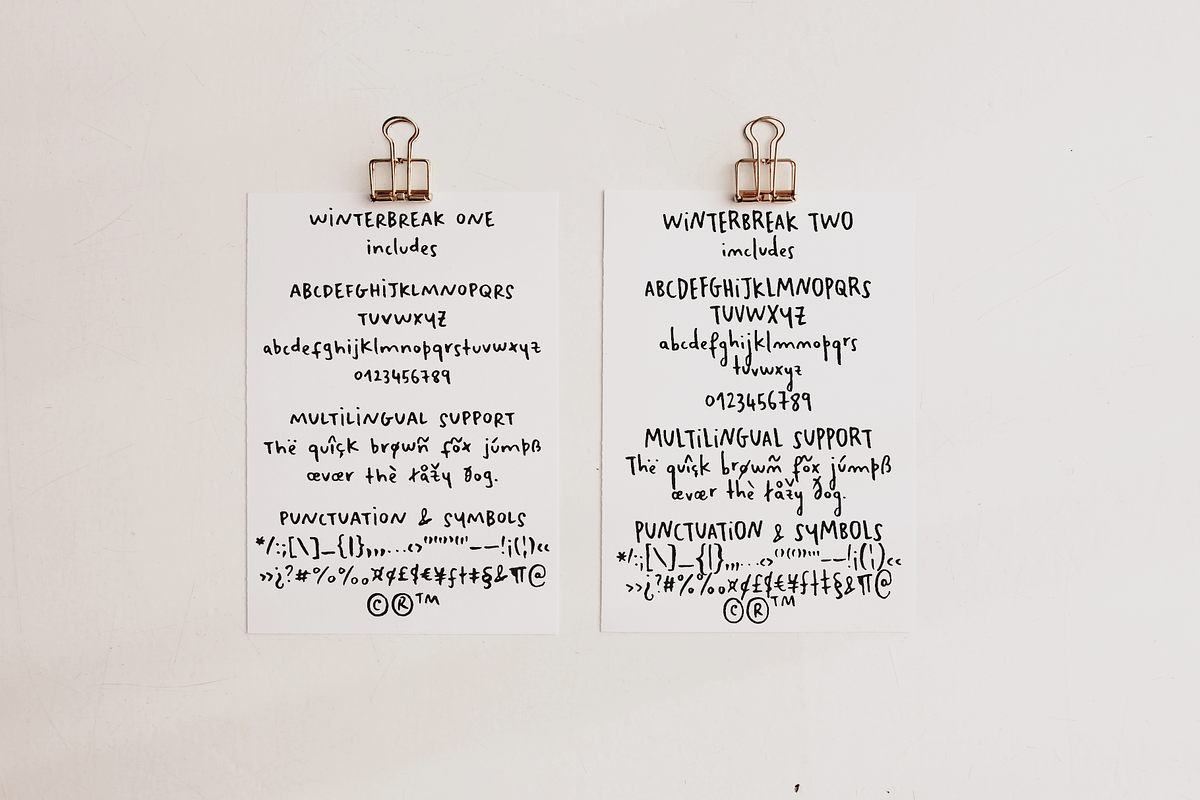 WiNTERBREAK ONE
includes
ABCDEFGHiJKLMNOPQRS
TUVWXYZ
abcdefghijklmnopqrstuvwxyz
0123456789
MULTiLiNGUAL SUPPORT
Thë quîçk brøwñ fõx júmpß
œvær thè łåžy ðog.
PUNCTUATiON & SYMBOLS
*/:;[\]_{|}‚„,…‹›"''""'–—!¡(¦)«
»¿?#%‰¤¢£$€¥ƒ†‡§&¶@
©®™
WiNTERBREAK TWO
includes
ABCDEFGHiJKLMNOPQRS
TUVWXYZ
abcdefghijklmnopqrs
tuvwxyz
0123456789
MULTiLiNGUAL SUPPORT
Thë quîçk brøwñ fõx júmpß
œvær thè łåžy ðog.
PUNCTUATiON & SYMBOLS
*/:;[\]_{|}‚„,…‹›''""'"–—!¡(¦)«
»¿?#%‰¤¢£$€¥ƒ†‡§&¶@
©®™